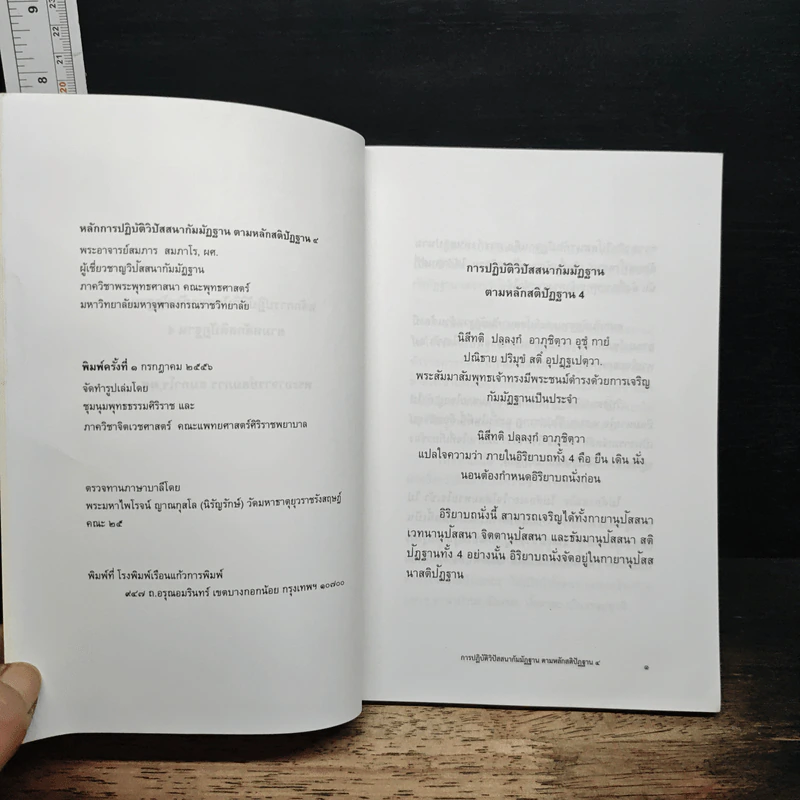 9
8
23
22
21
20
หลักการปฏิบัติวิปัสสนากัมมัฏฐาน ตามหลักสติปัฏฐาน ๔
พระอาจารย์สมภาร สมภาโร, ผศ.
ผู้เชี่ยวชาญวิปัสสนากัมมัฏฐาน
ภาควิชาพระพุทธศาสนา คณะพุทธศาสตร์
มหาวิทยาลัยมหาจุฬาลงกรณราชวิทยาลัย
พิมพ์ครั้งที่ ๑ กรกฎาคม ๒๕๕๖
จัดทำรูปเล่มโดย
ชุมนุมพุทธธรรมศิริราช และ
ภาควิชาจิตเวชศาสตร์ คณะแพทยศาสตร์ศิริราชพยาบาล
ตรวจทานภาษาบาลีโดย
พระมหาไพโรจน์ ญาณกุสโล (นิรัญรักษ์) วัดมหาธาตุยุวราชรังสฤษฎ์
คณะ ๒๕
พิมพ์ที่ โรงพิมพ์เรือนแก้วการพิมพ์
๙๔๗ ถ.อรุณอมรินทร์ เขตบางกอกน้อย กรุงเทพฯ ๑๐๗๐๐
การปฏิบัติวิปัสสนากัมมัฏฐาน
ตามหลักสติปัฏฐาน 4
นิสีทติ ปลฺลงฺกํ อาภุชิตฺวา อุชุํ กายํ
ปณิธาย ปริมุขํ สติํ อุปฏฺฐเปตฺวา.
พระสัมมาสัมพุทธเจ้าทรงมีพระชนม์ดำรงด้วยการเจริญ
กัมมัฏฐานเป็นประจำ
นิสีทติ ปลฺลงฺกํ อาภุชิตฺวา
แปลใจความว่า ภายในอิริยาบถทั้ง 4 คือ ยืน เดิน นั่ง
นอนต้องกำหนดอิริยาบถนั่งก่อน
อิริยาบถนั่งนี้ สามารถเจริญได้ทั้งกายานุปัสสนา
เวทนานุปัสสนา จิตตานุปัสสนา และธัมมานุปัสสนา สติ
ปัฏฐานทั้ง 4 อย่างนั้น อิริยาบถนั่งจัดอยู่ในกายานุปัสส
นาสติปัฏฐาน
การปฏิบัติวิปัสสนากัมมัฏฐาน ตามหลักสติปัฏฐาน ๔
๑